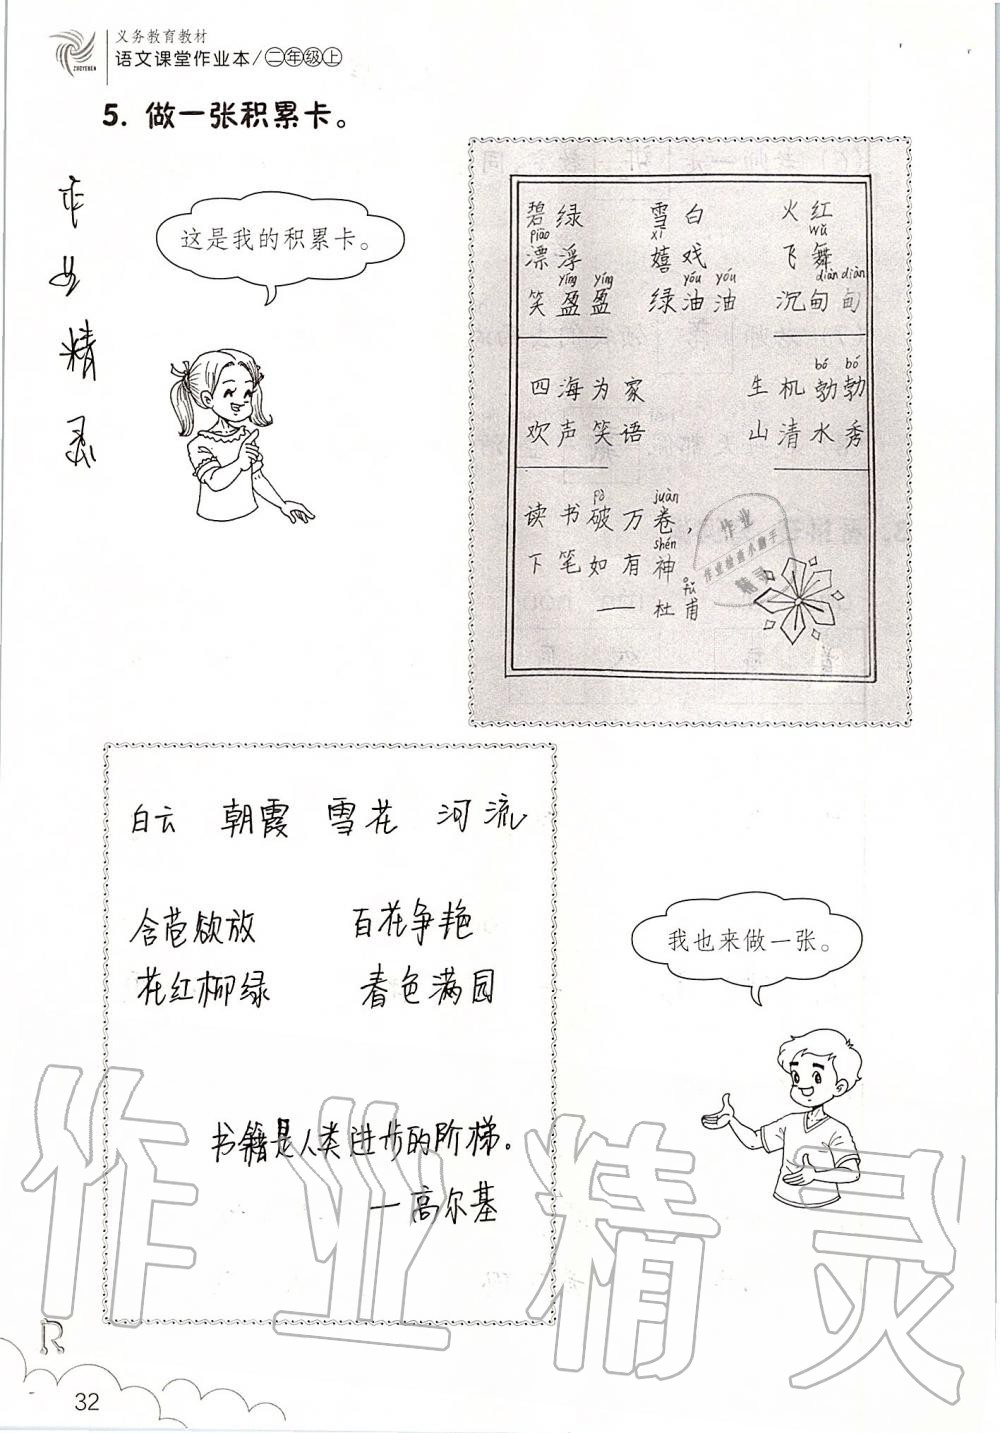 义务教育教材
语文课堂作业本/二年级上
ZUOYEBEN
5. 做一张积累卡。
作业精灵
这是我的积累卡。
碧绿 雪白 火红
piāo xī wǔ
漂浮 嬉戏 飞舞
yíng yíng yóu yóu diàn diàn
笑盈盈 绿油油 沉甸甸
bó bó
四海为家 生机勃勃
欢声笑语 山清水秀
pò juàn
读书破万卷，
shén
下笔如有神
fǔ
——杜甫
作业
作业检查小助手
精灵
白云 朝霞 雪花 河流
含苞欲放 百花争艳
花红柳绿 春色满园
书籍是人类进步的阶梯。
—高尔基
我也来做一张。
作业精灵
R
32